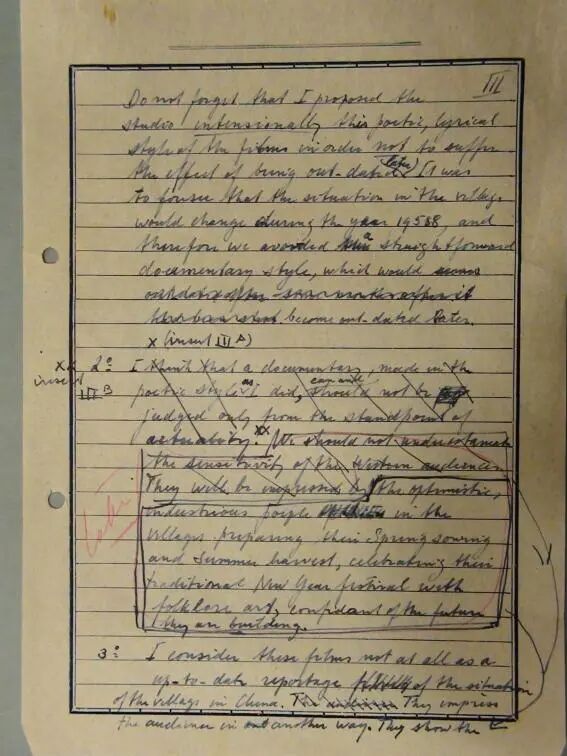 III
Do not forget that I proposed the
studio intensionally this poetic, lyrical
style of the films in order not to suffer
the effect of being out-dated later. (I was
to forsee that the situation in the village
would change during the year 1958, and
therefore we avoided a straightforward
documentary style, which would
become out-dated later.
x (insert III A)
xx 2° I think that a documentary, made in the
insert III B poetic style as I did, can and should not be
judged only from the standpoint of
actuality. xx We should not underestimate
the sensitivity of the Western audiences
They will be impressed by the optimistic,
industrious people in the
villages preparing their Spring sowing
and Summer harvest, celebrating their
traditional New Year festival with
folklore art, confidant of the future
they are building.
3° I consider these films not at all as a
up-to-date reportage of the situation
of the villags in China. They impress
the audience in another way. They show the